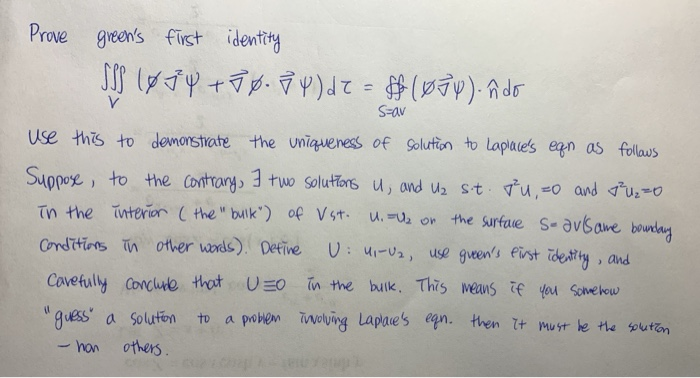 Prove green's first identity
∭ (φ∇²ψ + ∇⃗φ · ∇⃗ψ) dτ = ∯ (φ∇⃗ψ) · n̂ dσ
V S=∂V
Use this to demonstrate the uniqueness of solution to Laplace's eqn as follows
Suppose, to the contrary, ∃ two solutions u, and u₂ s.t. ∇²u,=0 and ∇²u₂=0
in the interior (the "bulk") of V st. u.=u₂ on the surface S=∂V (Same bounday
Conditions in other words). Define U : u₁-u₂, use green's first identity, and
Carefully conclude that U≡0 in the bulk. This means if you somehow
"guess" a solution to a problem involving Laplace's eqn. then it must be the solution
- non others.